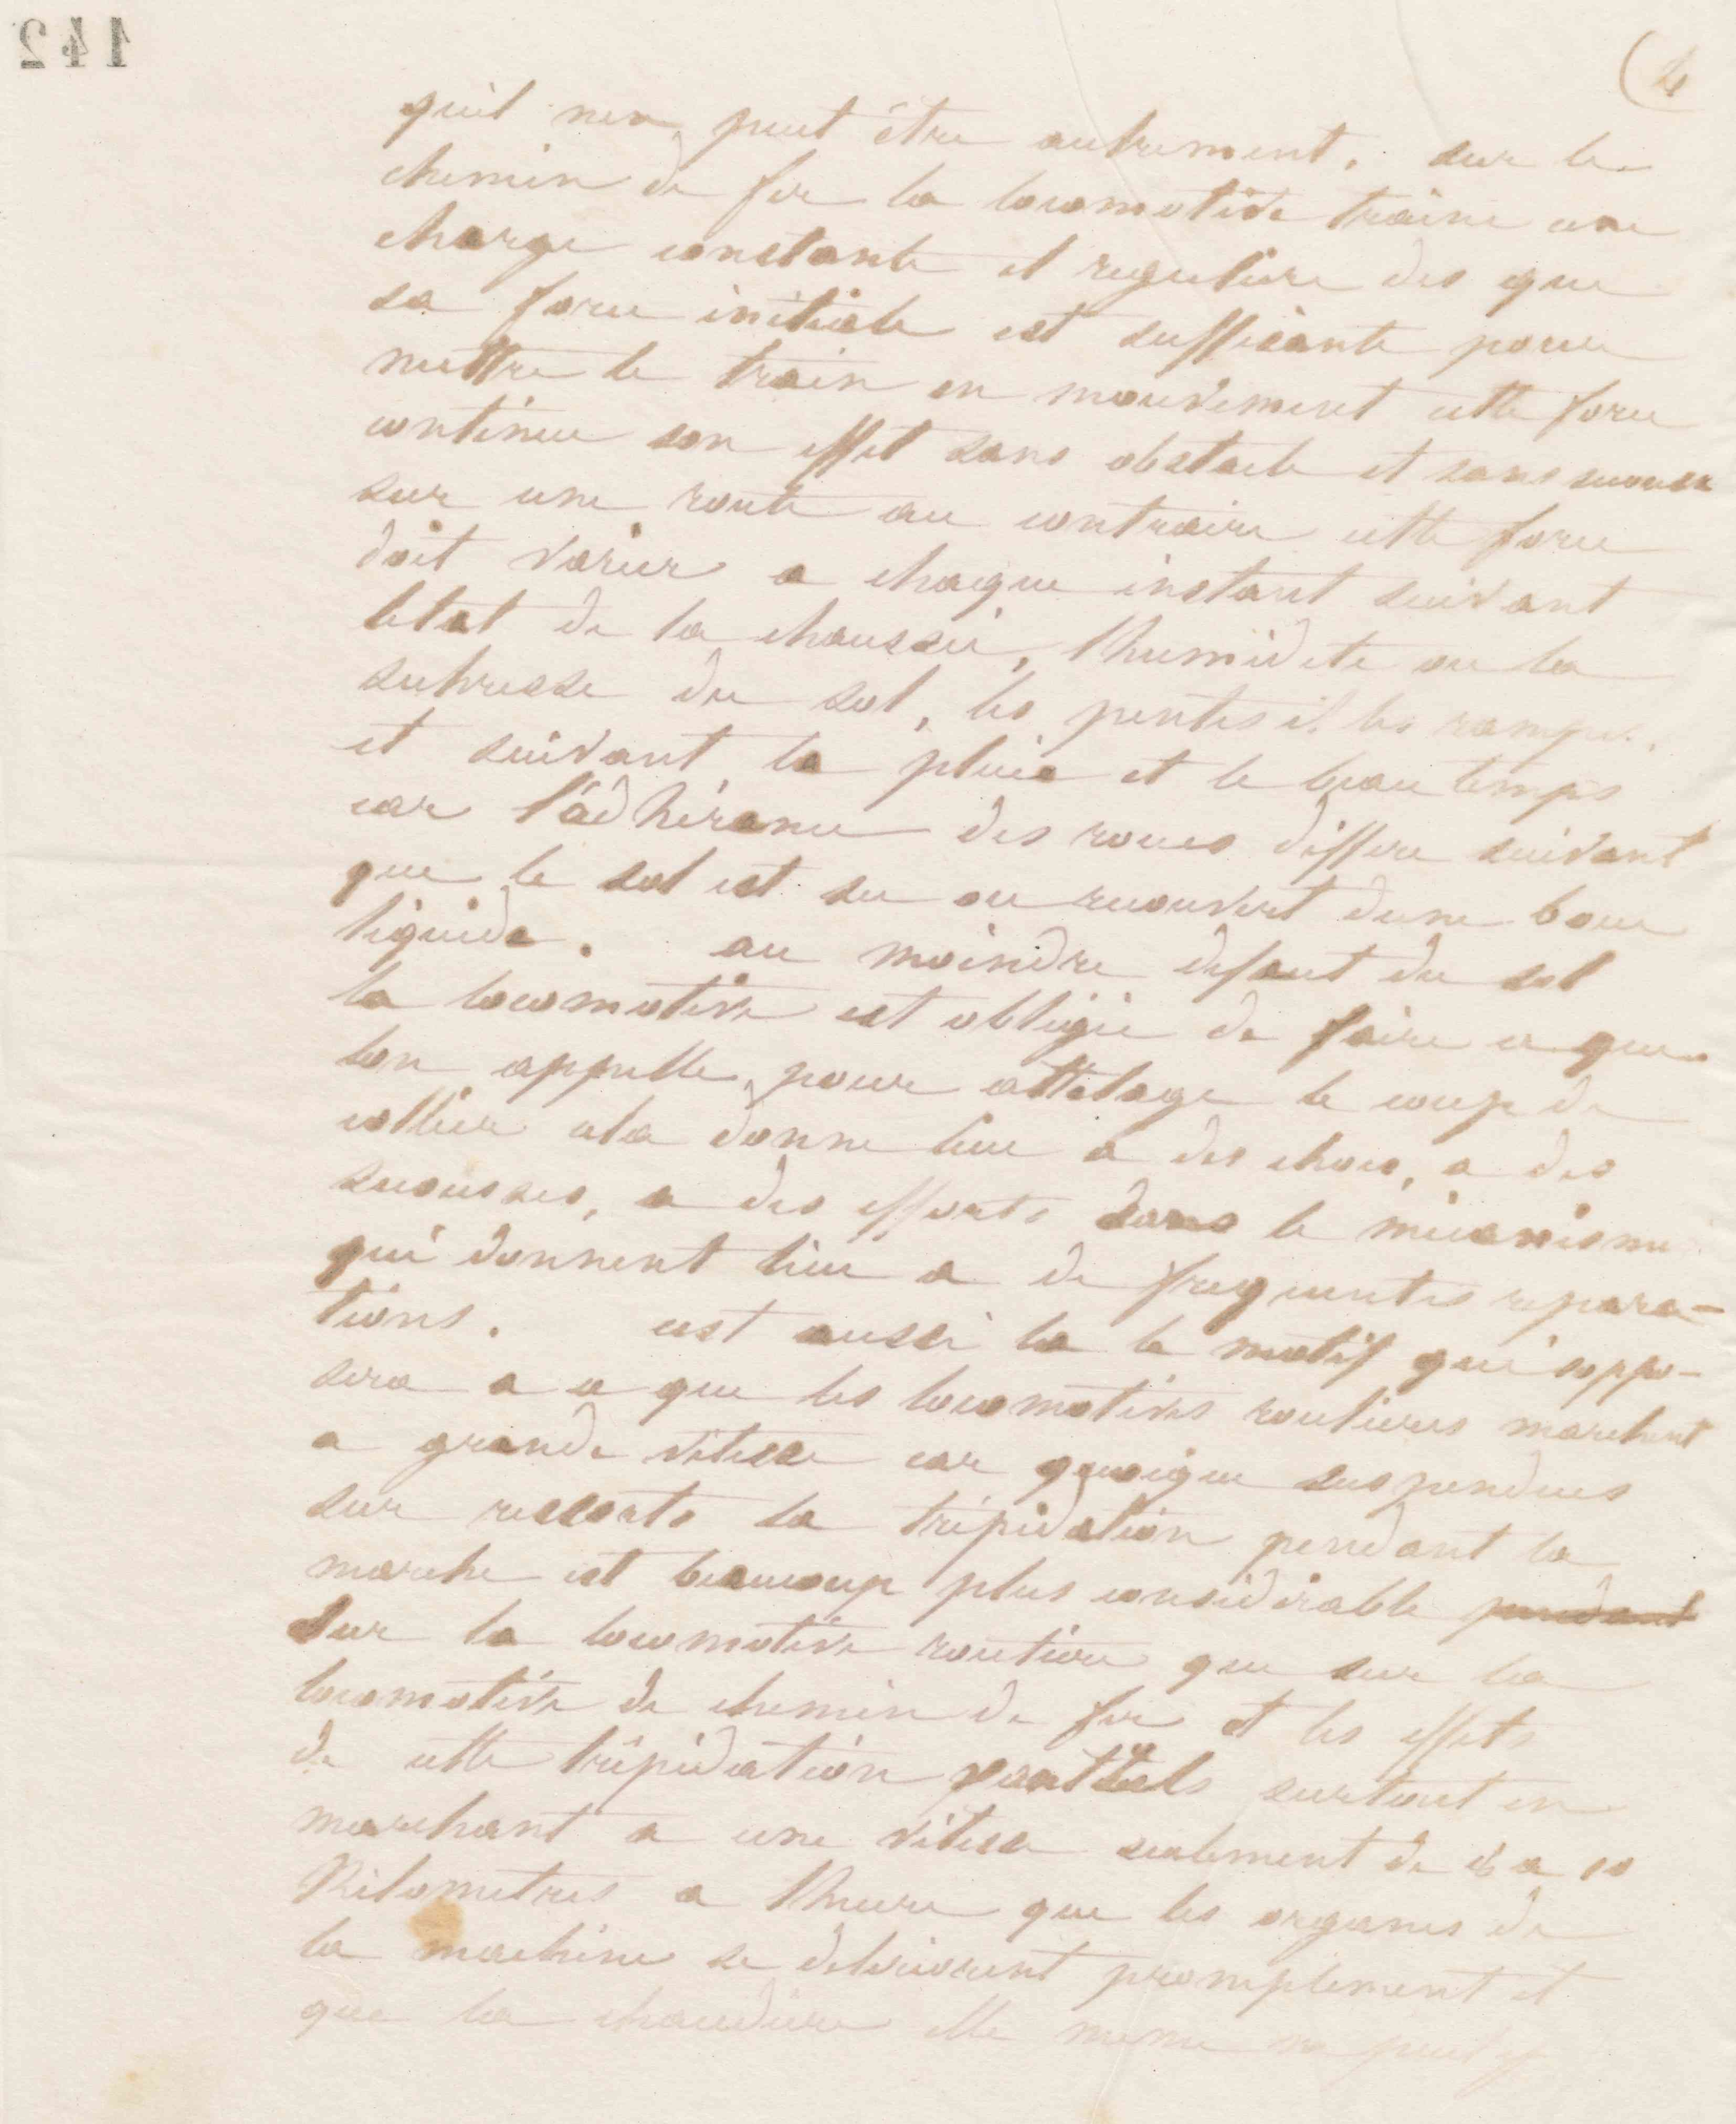 142
(4
quil nen peut être autrement. sur le
chemin de fer la locomotive traine une
charge constante et reguliere des que
sa force initiale est suffisante pour
mettre le train en mouvement cette force
continue son effet sans obstacle et sans
sur une route au contraire cette force
doit varier a chaque instant suivant
letat de la chaussée, lhumidite ou la
sechresse du sol, les pentes et les rampes.
et suivant la pluie et le beau temps
car l'adhérance des roues differe suivant
que le sol est sec ou recouvert dune boue
liquide. au moindre defaut du sol
la locomotive est obligée de faire ce que
lon appelle pour attelage le coup de
collier cela donne lieu a des chocs, a des
secousses, a des efforts dans le mécanisme
qui donnent lieu a de frequentes repara-
tions. cest aussi la le motif qui soppo-
sera a ce que les locomotives routieres marchent
a grande vitesse car quoique suspendues
sur ressorts la trépidation pendant la
marche est beaucoup plus considérable pendant
sur la locomotive routiere que sur la
locomotive de chemin de fer et les effets
de cette trépidation sont tels surtout en
marchant a une vitesse seulement de 8 a 10
Kilometres a lheure que les organes de
la machine se deteriorent promptement et
que la chaudiere elle meme ne peut y